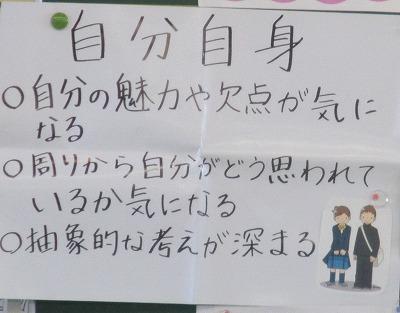 自分自身
○自分の魅力や欠点が気に
なる
○周りから自分がどう思われて
いるか気になる
○抽象的な考えが深まる